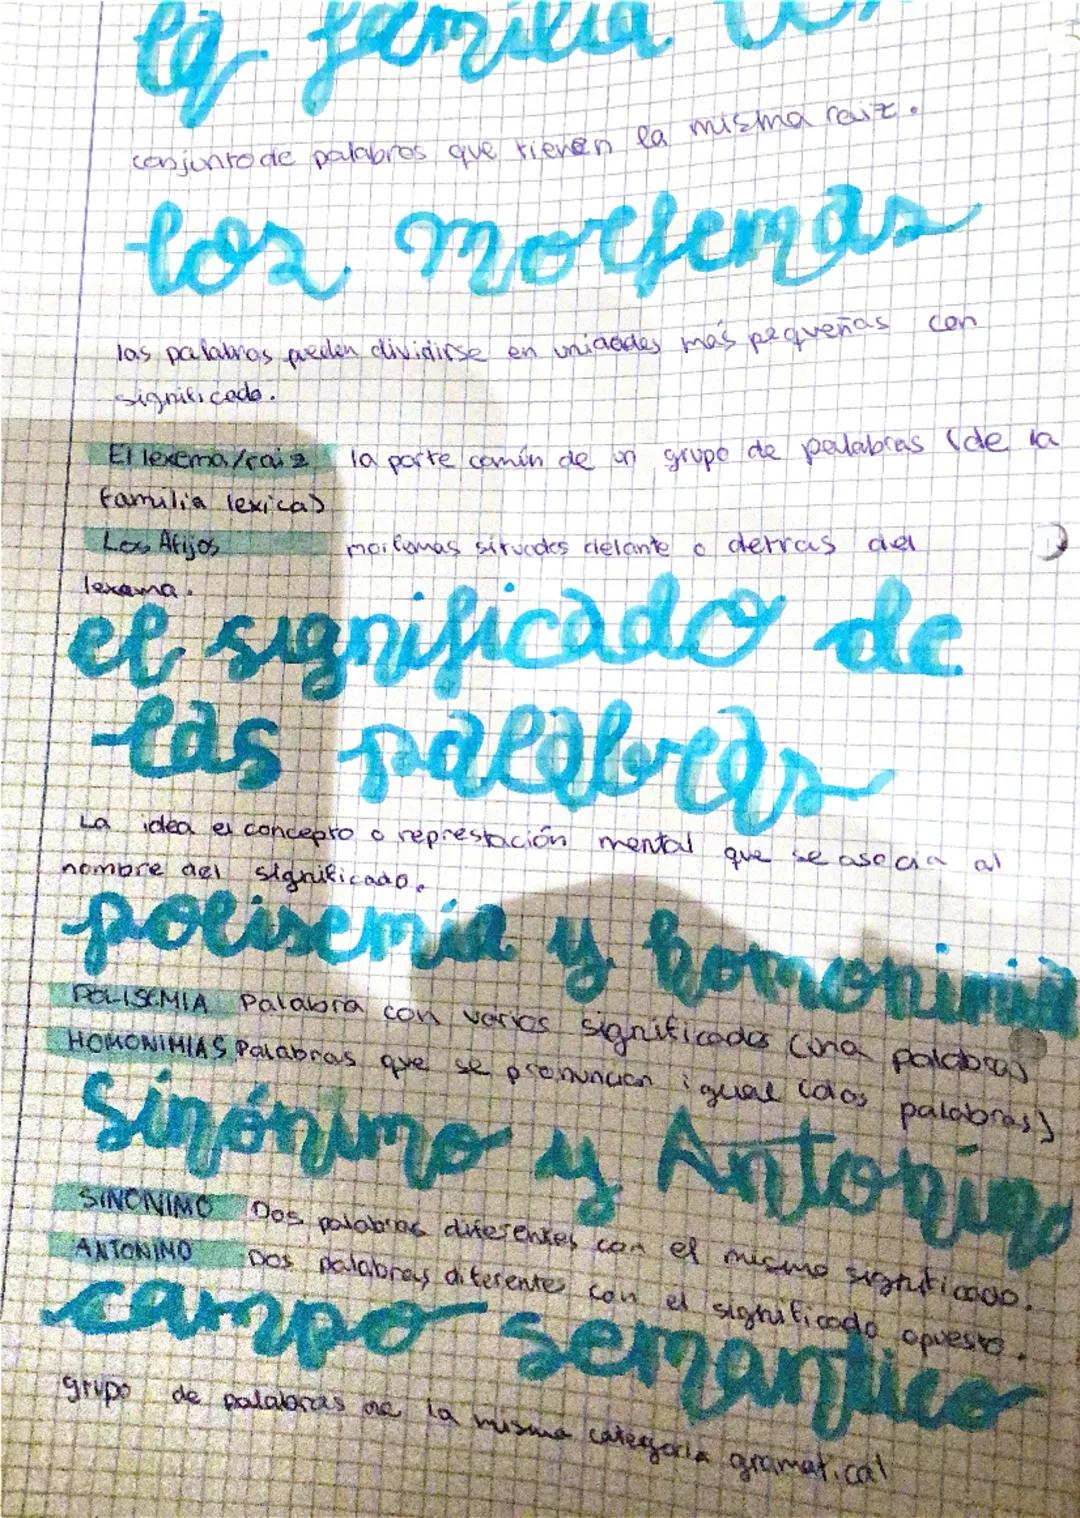 la familia
conjunto de palabras que tienen la misma raiz.
los morfemas
las palabras pueden dividirse en unidades más pequeñas con
significado.
El lexema/raiz la parte común de un grupo de palabras (de la
familia lexica)
Los Afijos morfemas situados delante o detras del
lexema.
el significado de
las palabras
La idea el concepto o represtación mental que se asocia al
nombre del significado.
polisemia y homonimia
POLISEMIA Palabra con varios significados (una palabra)
HOMONIMIAS Palabras que se pronuncian igual (dos palabras)
Sinónimo y Antonimo
SINONIMO Dos palabras diferentes con el mismo significado.
ANTONIMO Dos palabras diferentes con el significado opuesto.
campo semantico
grupo de palabras de la misma categoria gramatical